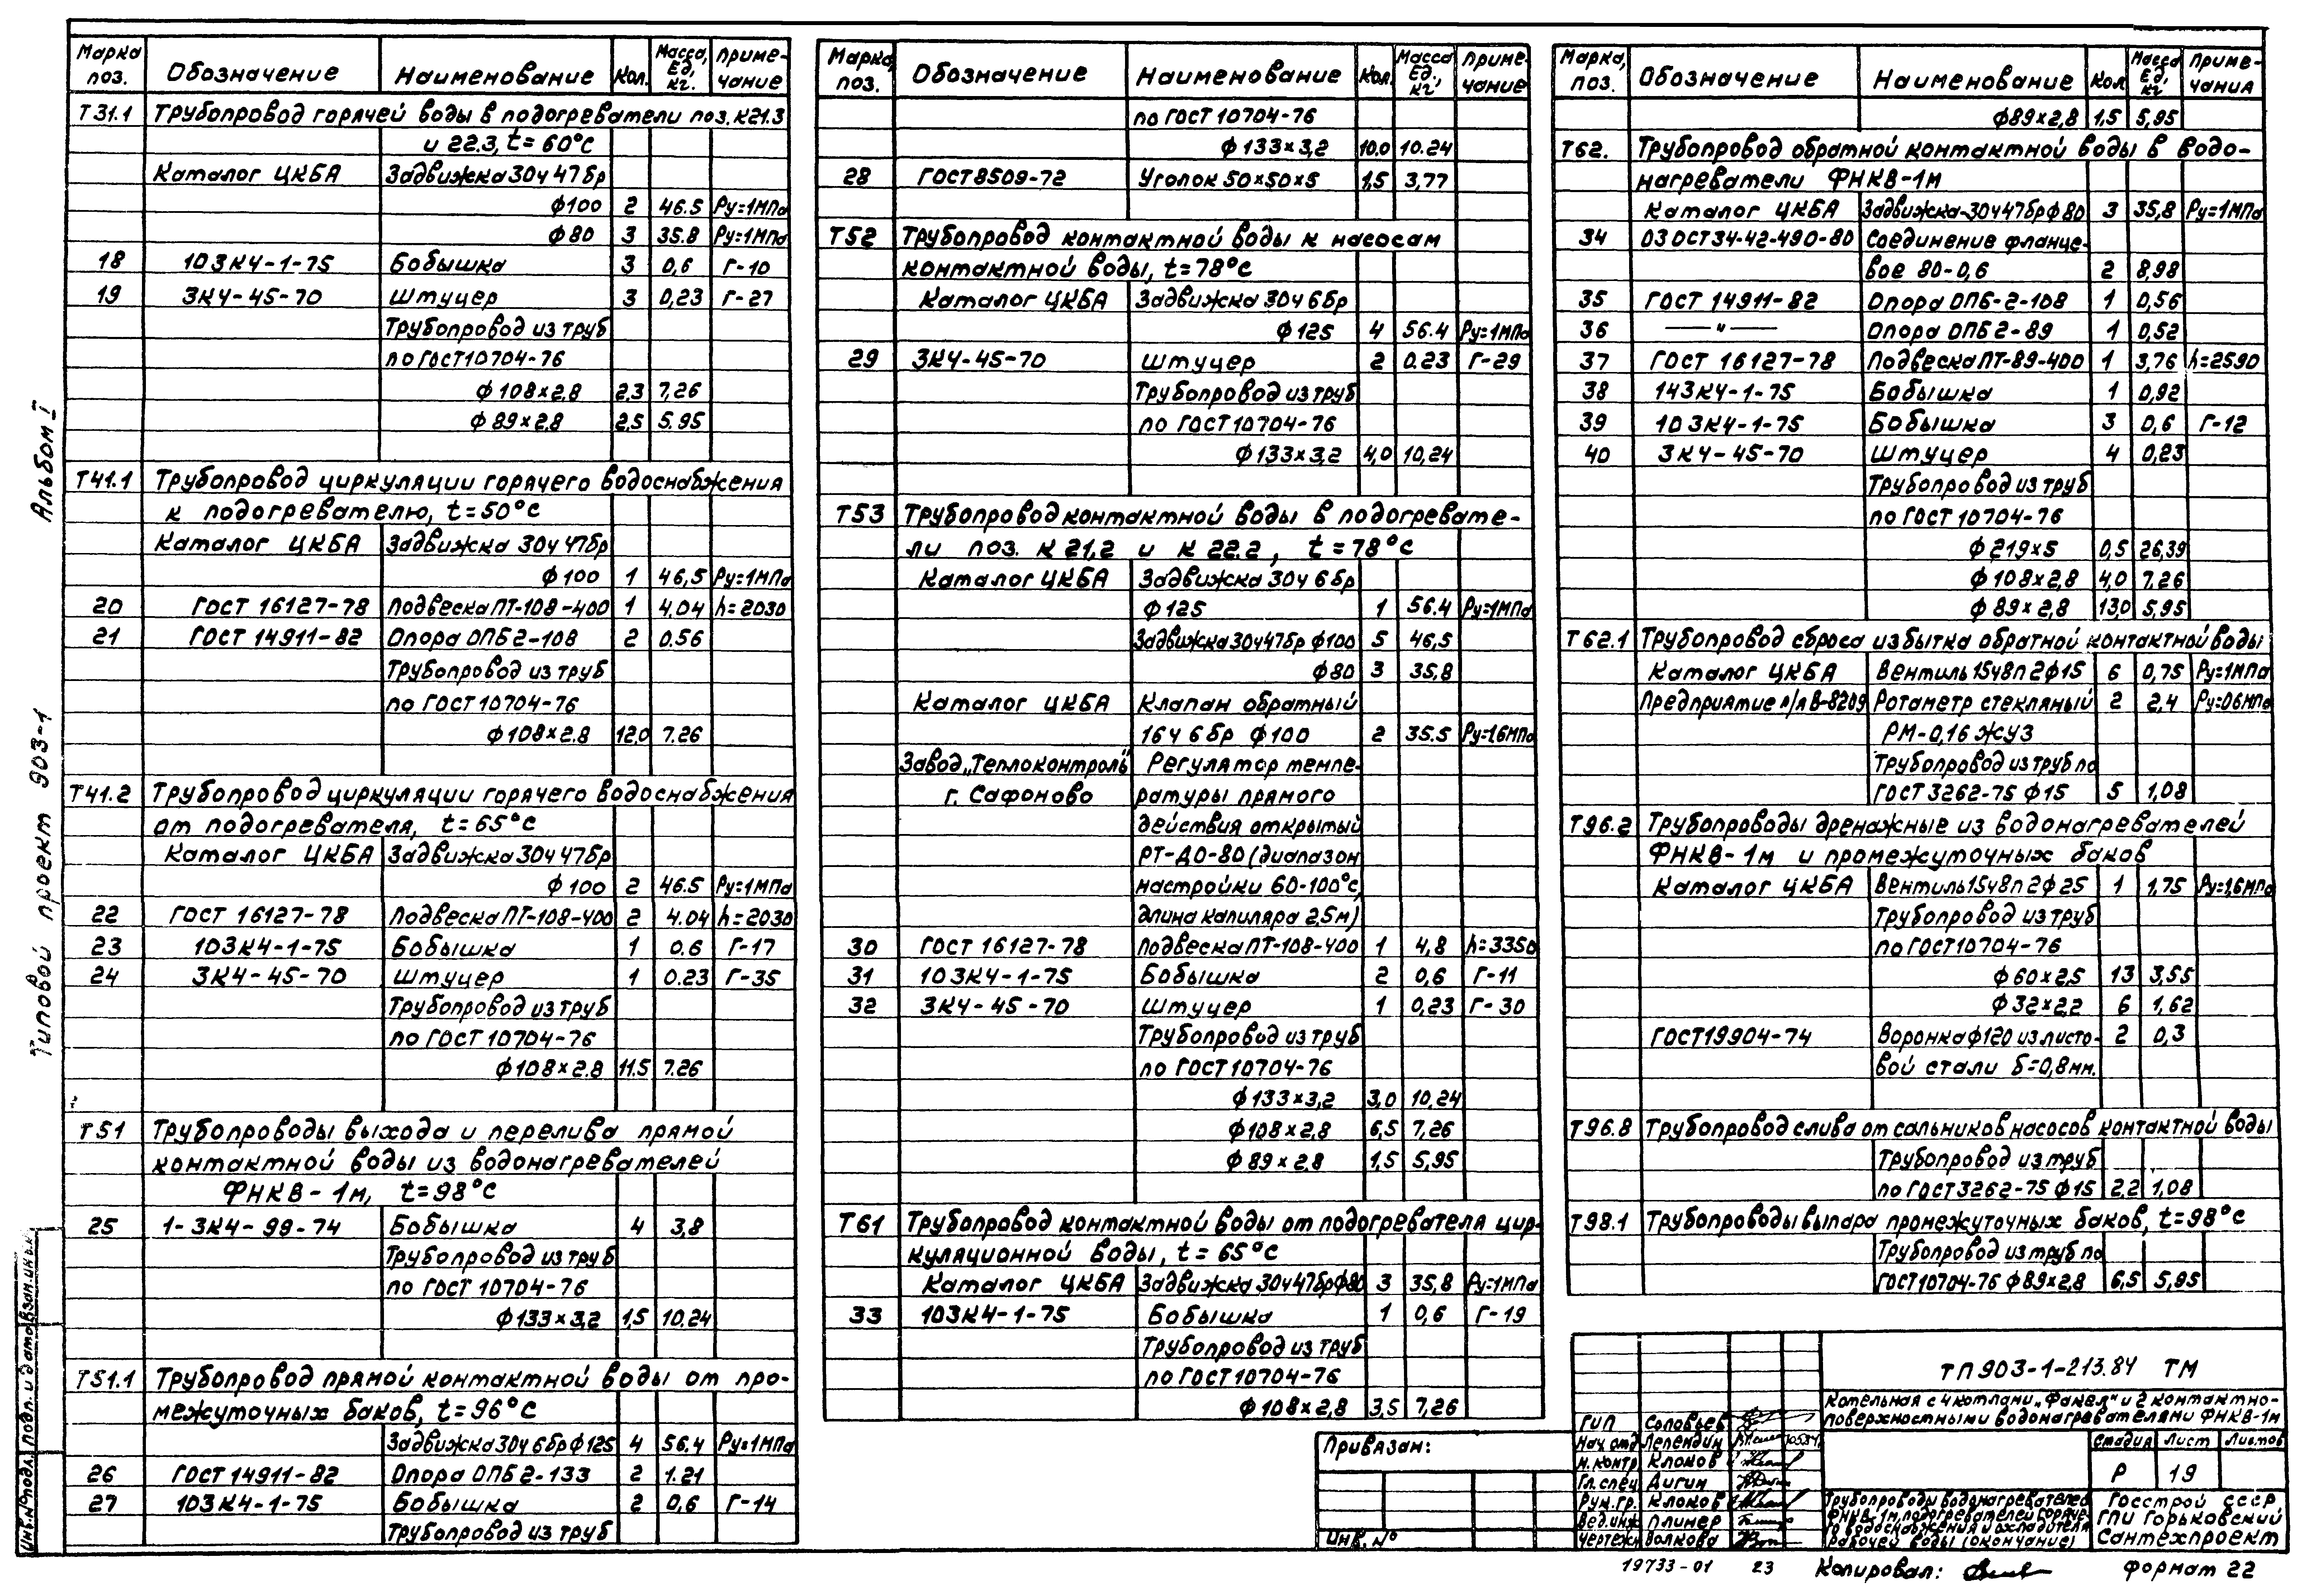 Марка поз. Обозначение Наименование Кол. Масса, Ед, кг. Приме-чание
Т31.1 Трубопровод горячей воды в подогреватели поз. К21.3
и 22.3, t=60°С
Каталог ЦКБА Задвижка 30ч47бр
ф100 2 46.5 Ру=1МПа
ф80 3 35.8 Ру=1МПа
18 103К4-1-75 Бобышка 3 0,6 Г-10
19 3К4-45-70 Штуцер 3 0,23 Г-27
Трубопровод из труб
по ГОСТ10704-76
ф108×2.8 2,3 7,26
ф89×2.8 2,5 5.95
Т41.1 Трубопровод циркуляции горячего водоснабжения
к подогревателю, t=50°С
Каталог ЦКБА Задвижка 30ч47бр
ф100 1 46,5 Ру=1МПа
20 ГОСТ 16127-78 Подвеска ПТ-108-400 1 4.04 h=2030
21 ГОСТ 14911-82 Опора ОПБ2-108 2 0.56
Трубопровод из труб
по ГОСТ10704-76
ф108×2.8 12,0 7.26
Т41.2 Трубопровод циркуляции горячего водоснабжения
от подогревателя, t=65°С
Каталог ЦКБА Задвижка 30ч47бр
ф100 2 46.5 Ру=1МПа
22 ГОСТ 16127-78 Подвеска ПТ-108-400 2 4.04 h=2030
23 103К4-1-75 Бобышка 1 0.6 Г-17
24 3К4-45-70 Штуцер 1 0.23 Г-35
Трубопровод из труб
по ГОСТ 10704-76
ф108×2.8 11.5 7.26
Т51 Трубопроводы выхода и перелива прямой
контактной воды из водонагревателей
ФНКВ-1м, t=98°С
25 1-3К4-99-74 Бобышка 4 3,8
Трубопровод из труб
по ГОСТ 10704-76
ф133×3,2 1,5 10,24
Т51.1 Трубопровод прямой контактной воды от про-
межуточных баков, t=96°С
Задвижка 30ч6бр ф125 4 56,4 Ру=1МПа
26 ГОСТ 14911-82 Опора ОПБ2-133 2 1.21
27 103К4-1-75 Бобышка 2 0,6 Г-14
Трубопровод из труб
Марка, поз. Обозначение Наименование Кол. Масса Ед., кг, Приме-чание
по ГОСТ 10704-76
ф133×3,2 10,0 10.24
28 ГОСТ8509-72 Уголок 50×50×5 1,5 3,77
Т52 Трубопровод контактной воды к насосам
контактной воды, t=78°С
Каталог ЦКБА Задвижка 30ч6бр
ф125 4 56.4 Ру=1МПа
29 3К4-45-70 Штуцер 2 0.23 Г-29
Трубопровод из труб
по ГОСТ10704-76
ф133×3,2 4,0 10,24
Т53 Трубопровод контактной воды в подогревате-
ли поз. К21.2 и К22.2, t=78°С
Каталог ЦКБА Задвижка 30ч6бр
ф125 1 56.4 Ру=1МПа
Задвижка 30ч47бр ф100 5 46,5
ф80 3 35,8
Каталог ЦКБА Клапан обратный
16ч6бр ф100 2 35.5 Ру=1,6МПа
Завод „Теплоконтроль" Регулятор темпе-
г. Сафоново ратуры прямого
действия открытый
РТ-ДО-80 (диапазон
настройки 60-100°С,
длина капиляра 2,5м)
30 ГОСТ 16127-78 Подвеска ПТ-108-400 1 4,8 h=3350
31 103К4-1-75 Бобышка 2 0,6 Г-11
32 3К4-45-70 Штуцер 1 0,23 Г-30
Трубопровод из труб
по ГОСТ 10704-76
ф133×3,2 3,0 10,24
ф108×2.8 6,5 7,26
ф89×2.8 1,5 5,95
Т61 Трубопровод контактной воды от подогревателя цир-
куляционной воды, t=65°С
Каталог ЦКБА Задвижка 30ч47бр ф80 3 35,8 Ру=1МПа
33 103К4-1-75 Бобышка 1 0,6 Г-19
Трубопровод из труб
по ГОСТ10704-76
ф108×2,8 3,5 7,26
Марка, поз. Обозначение Наименование Кол Масса Ед, кг Приме-чания
ф89×2,8 1,5 5,95
Т62. Трубопровод обратной контактной воды в водо-
нагреватели ФНКВ-1м
Каталог ЦКБА Задвижка-30ч47бр ф80 3 35,8 Ру=1МПа
34 03 ОСТ34-42-490-80 Соединение фланце-
вое 80-0,6 2 8,98
35 ГОСТ 14911-82 Опора ОПБ-2-108 1 0,56
36 —"— Опора ОПБ2-89 1 0,52
37 ГОСТ 16127-78 Подвеска ПТ-89-400 1 3,76 h=2590
38 143К4-1-75 Бобышка 1 0,92
39 103К4-1-75 Бобышка 3 0,6 Г-12
40 3К4-45-70 Штуцер 4 0,23
Трубопровод из труб
по ГОСТ 10704-76
ф219×5 0,5 26,39
ф108×2,8 4,0 7.26
ф89×2,8 13,0 5,95
Т62.1 Трубопровод сброса избытка обратной контактной воды
Каталог ЦКБА Вентиль 15ч8п2ф15 6 0,75 Ру=1МПа
Предприятие п/я В-8209 Ротаметр стекляный 2 2,4 Ру=0,6МПа
РМ-0,16 ЖУЗ
Трубопровод из труб по
ГОСТ 3262-75 ф15 5 1,08
Т96.2 Трубопроводы дренажные из водонагревателей
ФНКВ-1м и промежуточных баков
Каталог ЦКБА Вентиль 15ч8п2ф25 1 1,75 Ру=1,6МПа
Трубопровод из труб
по ГОСТ10704-76
ф60×2,5 13 3,55
ф32×2,2 6 1,62
ГОСТ19904-74 Воронка ф120 из листо- 2 0,3
вой стали δ=0,8мм.
Т96.8 Трубопровод слива от сальников насосов контактной воды
Трубопровод из труб
по ГОСТ3262-75 ф15 2,2 1,08
Т98.1 Трубопроводы выпара промежуточных баков, t=98°С
Трубопровод из труб по
ГОСТ10704-76 ф89×2,8 6,5 5,95
Альбом I
Типовой проект 903-1
Инв.№подл. Подп. и дата Взам.инв.№
Привязан:
Инв. №
ТП903-1-213.84 ТМ
Котельная с 4 котлами „Факел" и 2 контактно-
поверхностными водонагревателями ФНКВ-1м
ГИП Соловьев
Нач. отд Лепендин
Н. контр Клоков
Гл. спец Дигин
Рук. гр. Клоков
Вед. инж Плинер
Чертежн Волкова
Стадия Лист Листов
Р 19
Трубопроводы водонагревателей
ФНКВ-1м, подогревателей горяче-
го водоснабжения и охладителя
рабочей воды (окончание)
Госстрой СССР,
ГПИ Горьковский
Сантехпроект
19733-01 23 Копировал: Формат 22